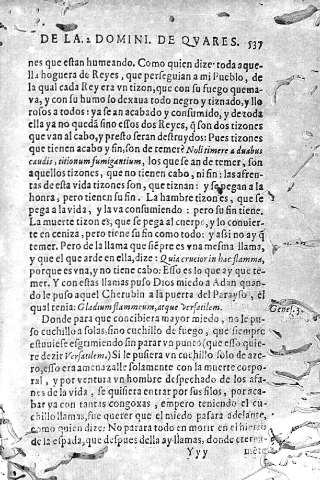 DE LA 2 DOMINI. DE QVARES. 537
nes que estan humeando. Como quien dize: toda aque-
lla hoguera de Reyes, que perseguian a mi Pueblo, de
la qual cada Rey era vn tizon, que con su fuego quema-
va, y con su humo lo dexaua todo negro y tiznado, y llo
rosos a todos: ya se an acabado y consumido, y de toda
ella ya no quedã sino essos dos Reyes, q̃ son dos tizones
que van al cabo, y presto seran destruydos: Pues tizones
que tienen acabo y fin, son de temer? Noli timere a duabus
caudis, titionum fumigantium, los que se an de temer, son
aquellos tizones, que no tienen cabo, ni fin: las afren-
tas de esta vida tizones son, que tiznan: y se pegan a la
honra, pero tienen su fin. La hambre tizon es, que se
pega a la vida, y la va consumiendo: pero su fin tiene.
La muerte tizon es, que se pega al cuerpo, y lo convier-
te en ceniza, pero tiene su fin como todo: y assi no ay q̃
temer. Pero de la llama que siẽpre es vna mesma llama,
y que el que arde en ella, dize: Quia crucior in hac flamma,
porque es vna, y no tiene cabo: Esso es lo que ay que te-
mer. Y con estas llamas puso Dios miedo a Adan quan-
do le puso aquel Cherubin a la puerta del Parayso, el
qual tenia: Gladium flammeum, atque versatilem. Genes. 3.
Donde para que concibiera mayor miedo, no le pu-
so cuchillo a solas, sino cuchillo de fuego, que siempre
estuuiesse esgrimiendo sin parar vn punto (que esso quie-
re dezir Versatilem.) Si le pusiera vn cuchillo solo de aze-
ro, esso era amenazalle solamente con la muerte corpo-
ral, y por ventura vn hombre despechado de los afa-
nes de la vida, se quisiera entrar por sus filos, por aca-
bar ya con tantas congoxas, empero teniendo el cu-
chillo llamas, fue querer que el miedo pasara adelante,
como quien dize: No parara todo en morir en el hierro
de la espada, que despues della ay llamas, donde eterna-
Yyy mẽte